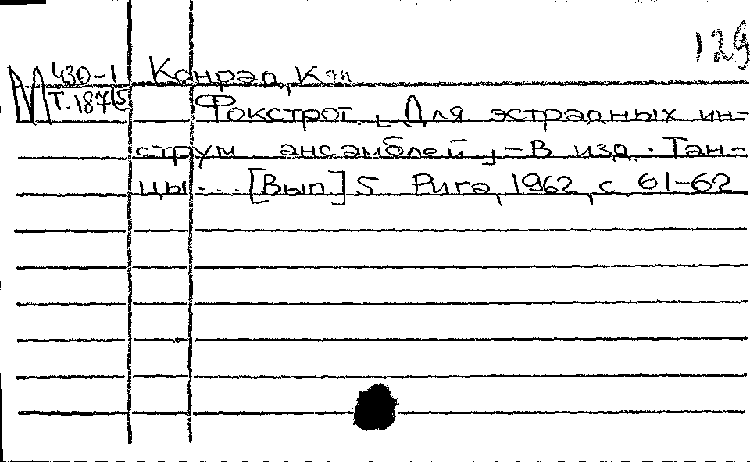 129
М 430-1 Конрад, К
Т.18745 Фокстрот, Для эстрадных ин-
струм ансамблей, - В изд. Тан-
цы... [Вып] 5 Рига, 1962, с 61-62